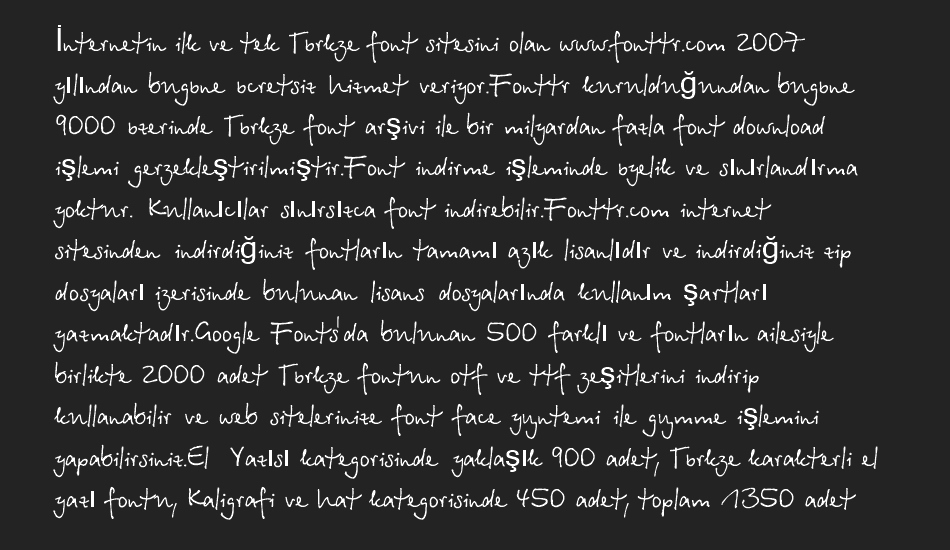 İnternetin ilk ve tek Tbrkze font sitesini olan www.fonttr.com 2007
yılından bugbne bcretsiz hizmet veriyor.Fonttr kurulduğundan bugbne
9000 bzerinde Tbrkze font arşivi ile bir milyardan fazla font download
işlemi gerzekleştirilmiştir.Font indirme işleminde byelik ve sınırlandırma
yoktur. Kullanıcılar sınırsızca font indirebilir.Fonttr.com internet
sitesinden indirdiğiniz fontların tamamı azık lisanlıdır ve indirdiğiniz zip
dosyaları izerisinde bulunan lisans dosyalarında kullanım şartları
yazmaktadır.Google Fonts'da bulunan 500 farklı ve fontların ailesiyle
birlikte 2000 adet Tbrkze fontun otf ve ttf zeşitlerini indirip
kullanabilir ve web sitelerinize font face yyntemi ile gymme işlemini
yapabilirsiniz.El Yazısı kategorisinde yaklaşık 900 adet, Tbrkze karakterli el
yazı fontu, Kaligrafi ve hat kategorisinde 450 adet, toplam 1350 adet